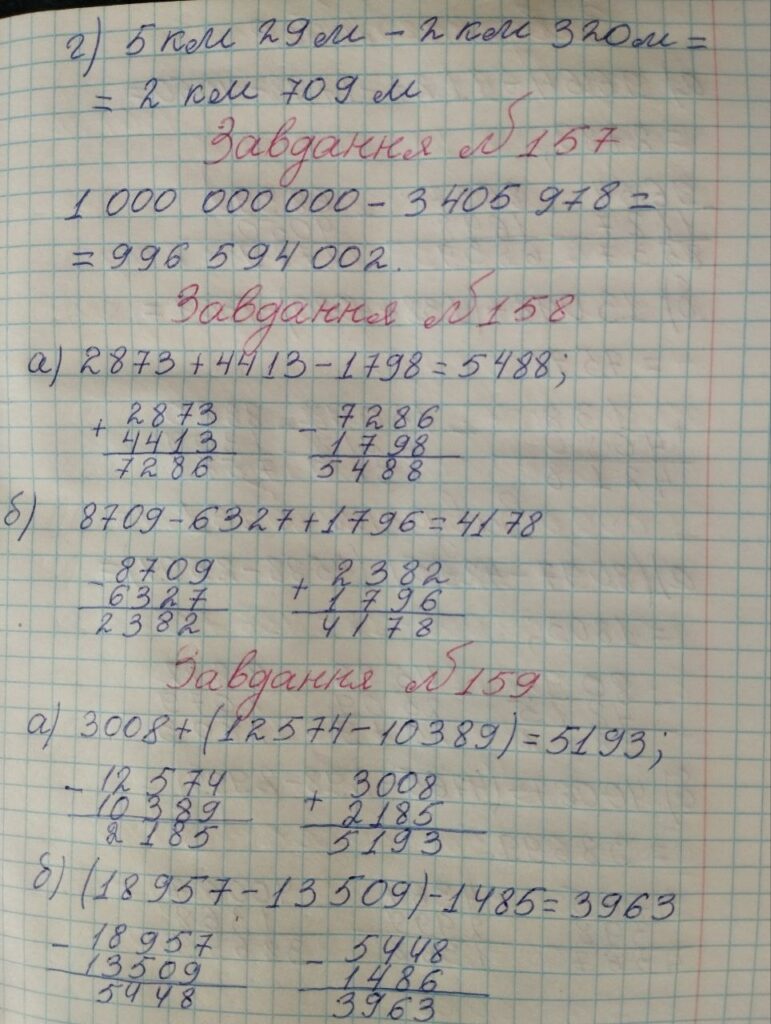 г) 5 км 29 м - 2 км 320 м =
= 2 км 709 м
Завдання №157
1 000 000 000 - 3 405 978 =
= 996 594 002.
Завдання №158
а) 2873 + 4413 - 1798 = 5488;
+ 2873 - 7286
4413 1798
7286 5488
б) 8709 - 6327 + 1796 = 4178
- 8709 + 2382
6327 1796
2382 4178
Завдання №159
а) 3008 + (12574 - 10389) = 5193;
- 12 574 + 3008
10 389 2185
2 185 5193
б) (18 957 - 13 509) - 1485 = 3963
- 18 957 - 5448
13509 1486
5448 3963